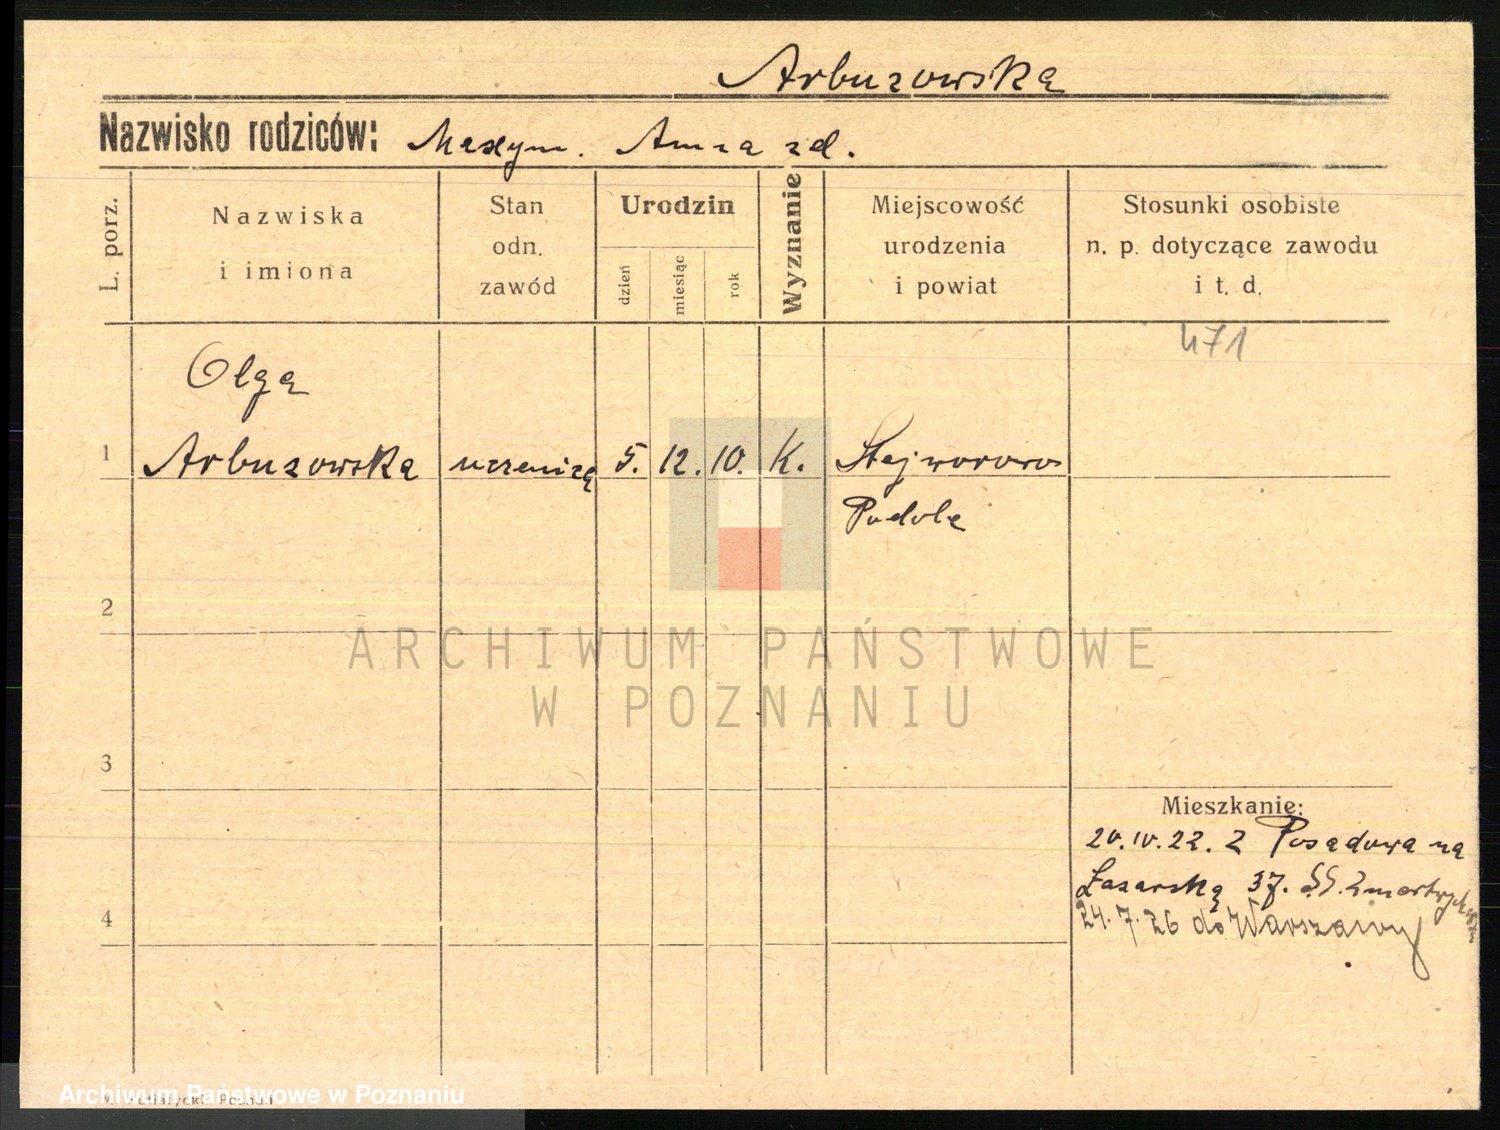 Arbuzowska
Nazwisko rodziców: Maxym. Anna zd.
L. porz.
Nazwiska
i imiona
Stan
odn.
zawód
Urodzin
dzień
miesiąc
rok
Wyznanie
Miejscowość
urodzenia
i powiat
Stosunki osobiste
n. p. dotyczące zawodu
i t. d.
471
Olga
1 Arbuzowska 5. 12. 10. K.
Podole
2
ARCHIWUM PAŃSTWOWE
W POZNANIU
3
Mieszkanie:
20.IV.22. Z Posadowa na
Łazarską 37. SS. Zmartwych
4
24.7.26 do Warszawy
Archiwum Państwowe w Poznaniu
Poznań